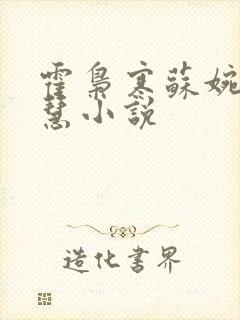 霍梟寒蘇婉
慧小說
造化書界